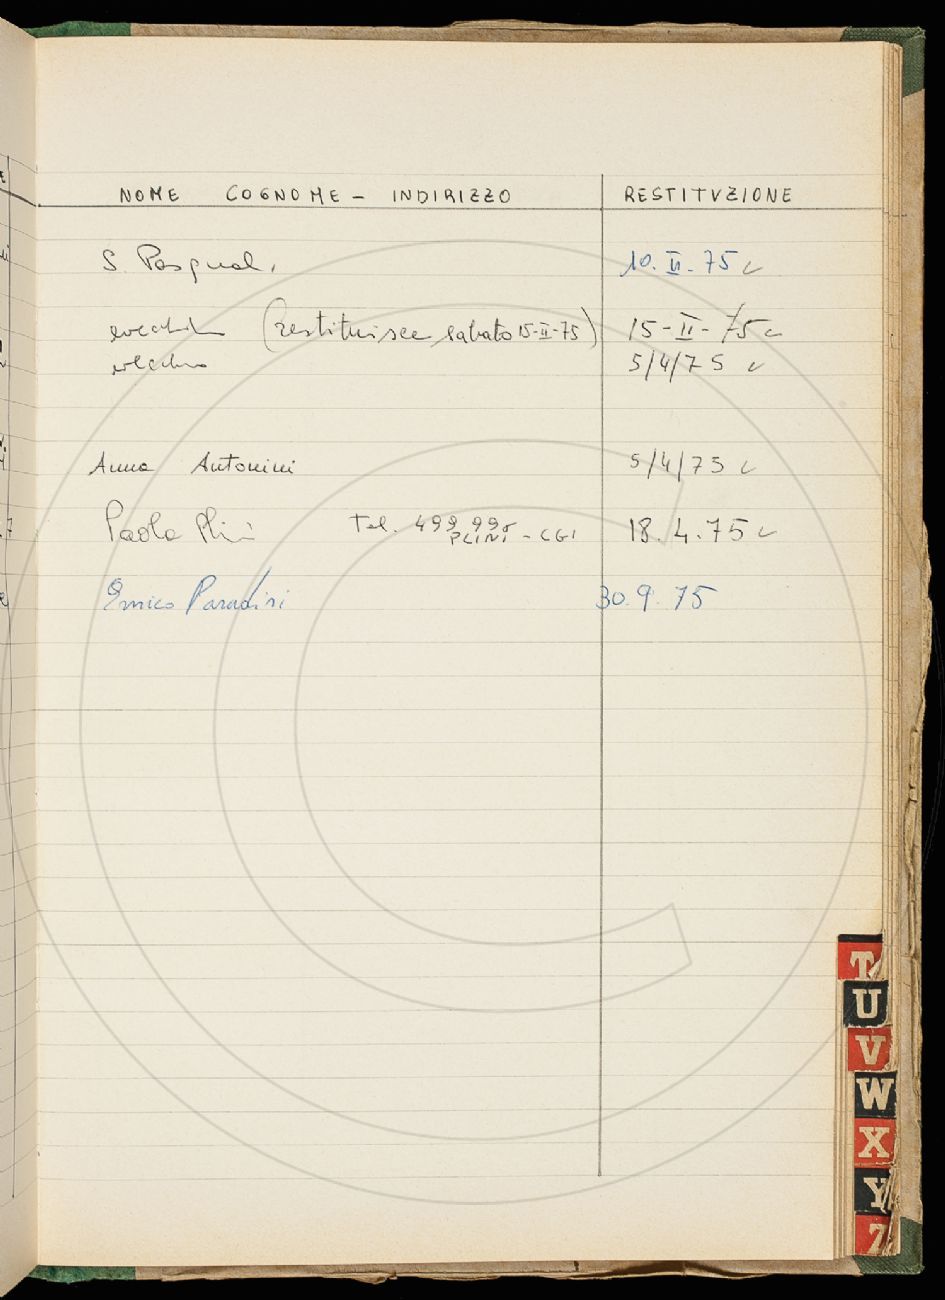 NOME COGNOME - INDIRIZZO RESTITVZIONE
S. Pasquali 10. II. 75
(restituisce sabato 15-II-75) 15-II-75
5/4/75
Anna Antonini 5/4/75
Paola Plini Tel. 499 995 18.4.75
PLINI - CGI
Enrico Paradisi 30.9.75
T
U
V
W
X
Y
Z